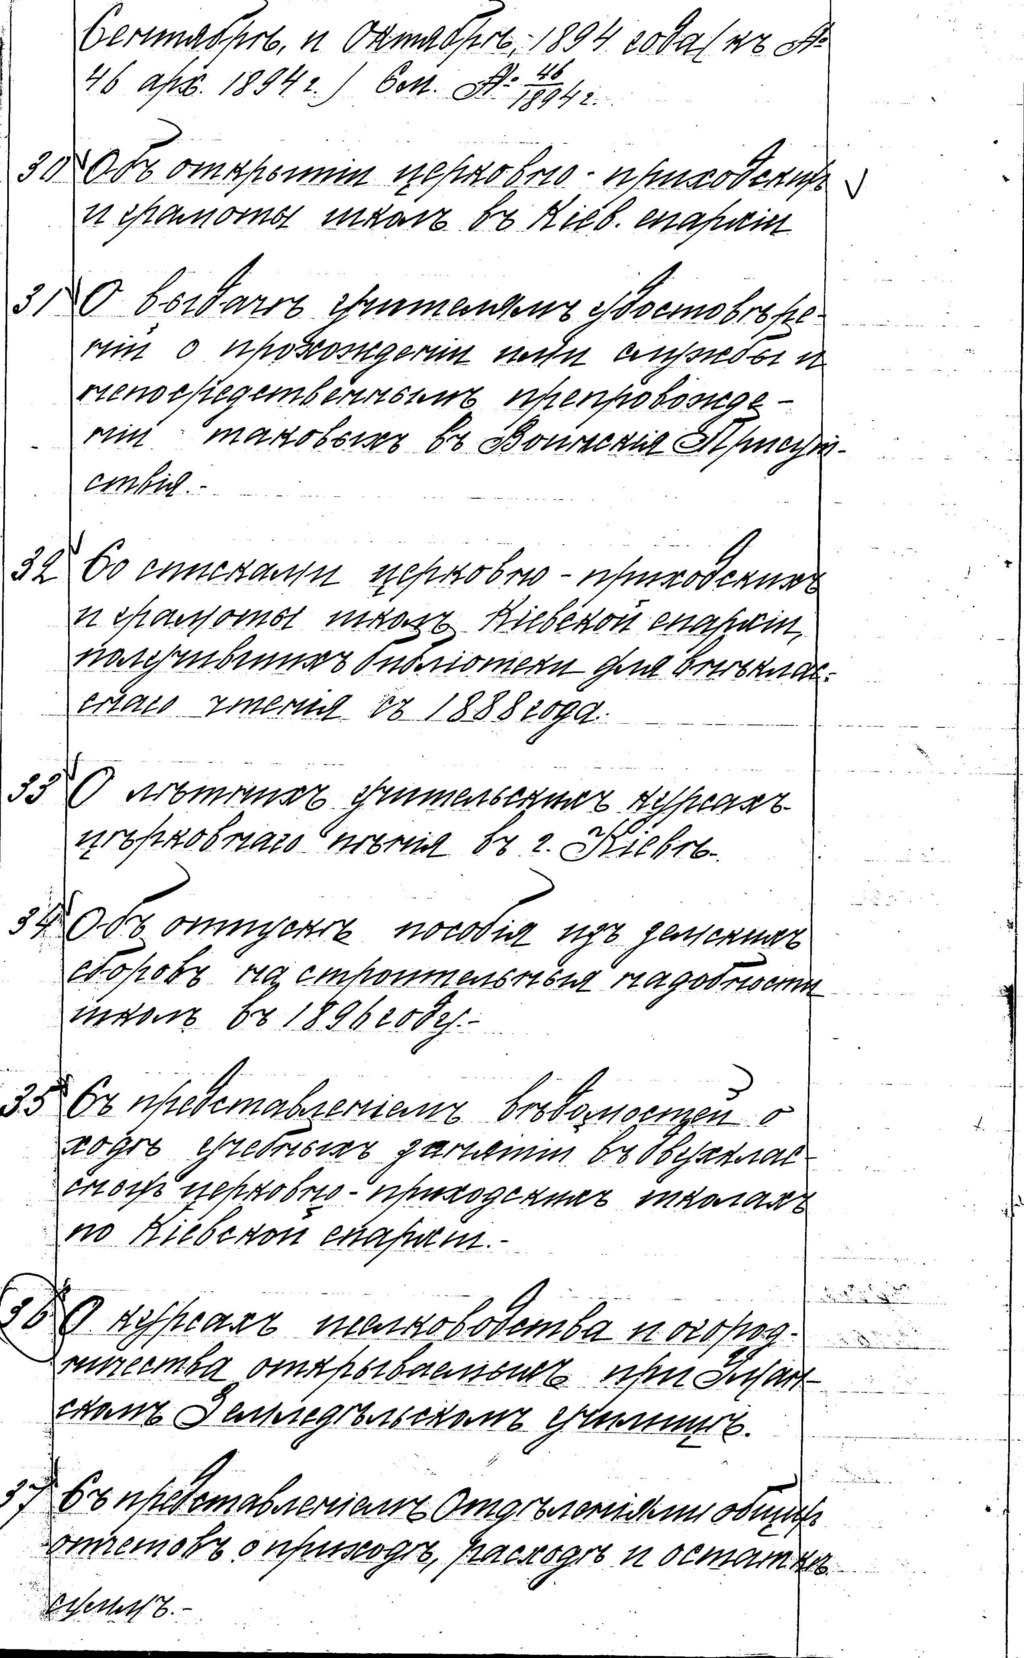 Сентябрѣ, и Октябрѣ, 1894 года (къ №
46 арх. 1894 г.) См. № 46/1894 г.
30 Объ открытіи церковно-приходских
и грамоты школъ въ Кіев. епархіи
31 О выдачѣ учителямъ удостовѣре-
ній о прохожденіи ими службы и
непосредственнымъ препровожде-
ніи таковыхъ въ Воинскія Присут-
ствія.-
32 Со списками церковно-приходскихъ
и грамоты школъ Кіевской епархіи,
получившихъ библіотеки для внѣклас-
снаго чтенія съ 1888 года.
33 О лѣтнихъ учительскихъ курсахъ
церковнаго пѣнія въ г. Кіевѣ.
34 Объ отпускѣ пособія изъ земскихъ
сборовъ на строительныя надобности
школъ въ 1896 году.-
35 Съ представленіемъ вѣдомостей о
ходѣ учебныхъ занятій въ двухклас-
сныхъ церковно-приходскихъ школахъ
по Кіевской епархіи.-
36 О курсахъ шелководства и огород-
ничества открываемыхъ при Уман-
скомъ Земледѣльскомъ училищѣ.
37 Съ представленіемъ Отдѣленіями общих
отчетовъ о приходѣ, расходѣ и остаткѣ
суммъ.-